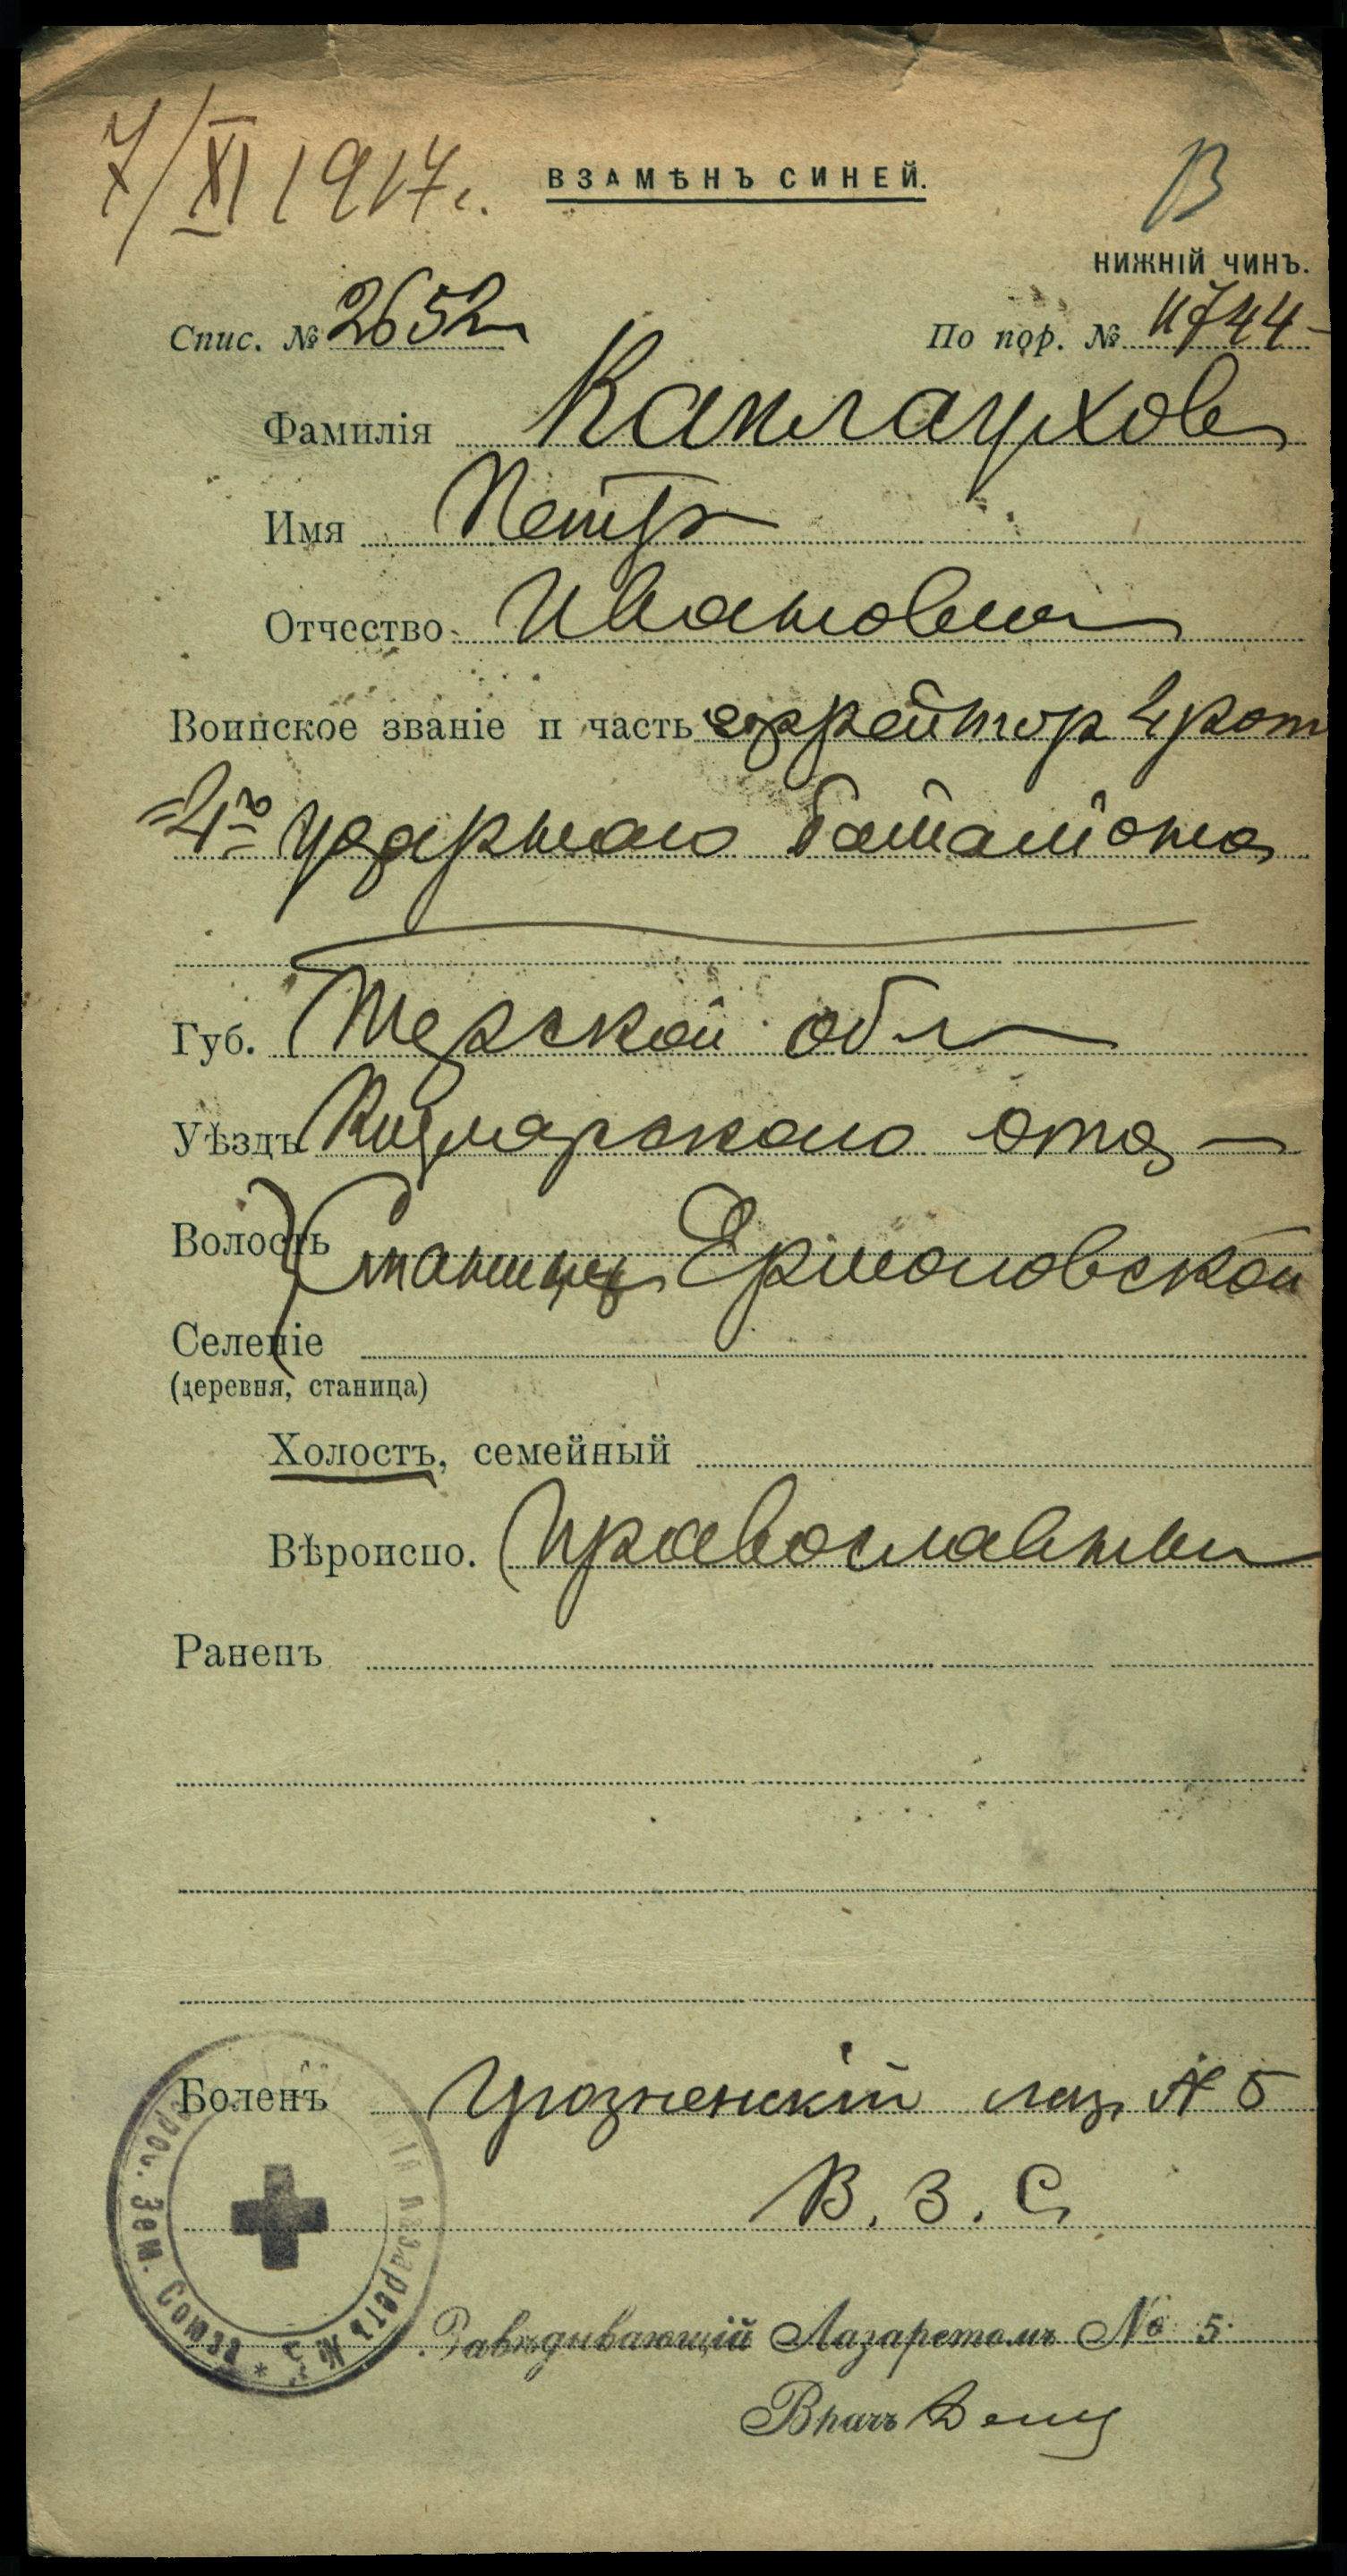 7/XI 1917г.
ВЗАМѢНЪ СИНЕЙ.
В
НИЖНІЙ ЧИНЪ.
Спис. № 2652
По пор. № 11744
Фамилія Каплаухов
Имя Петр
Отчество Иванович
Воинское званіе и часть ефрейтор 4 рот
4го ударного баталіона
Губ. Терской обл
Уѣздъ Кизлярского отд
Волость Станицы Ермоловской
Селеніе
(деревня, станица)
Холостъ, семейный
Вѣроиспо. православный
Раненъ
Боленъ Грозненскій лаз № 5
В. З. С.
Завѣдывающій Лазаретомъ № 5
Врачъ
Лазаретъ № 5 * Всерос. Зем. Союза